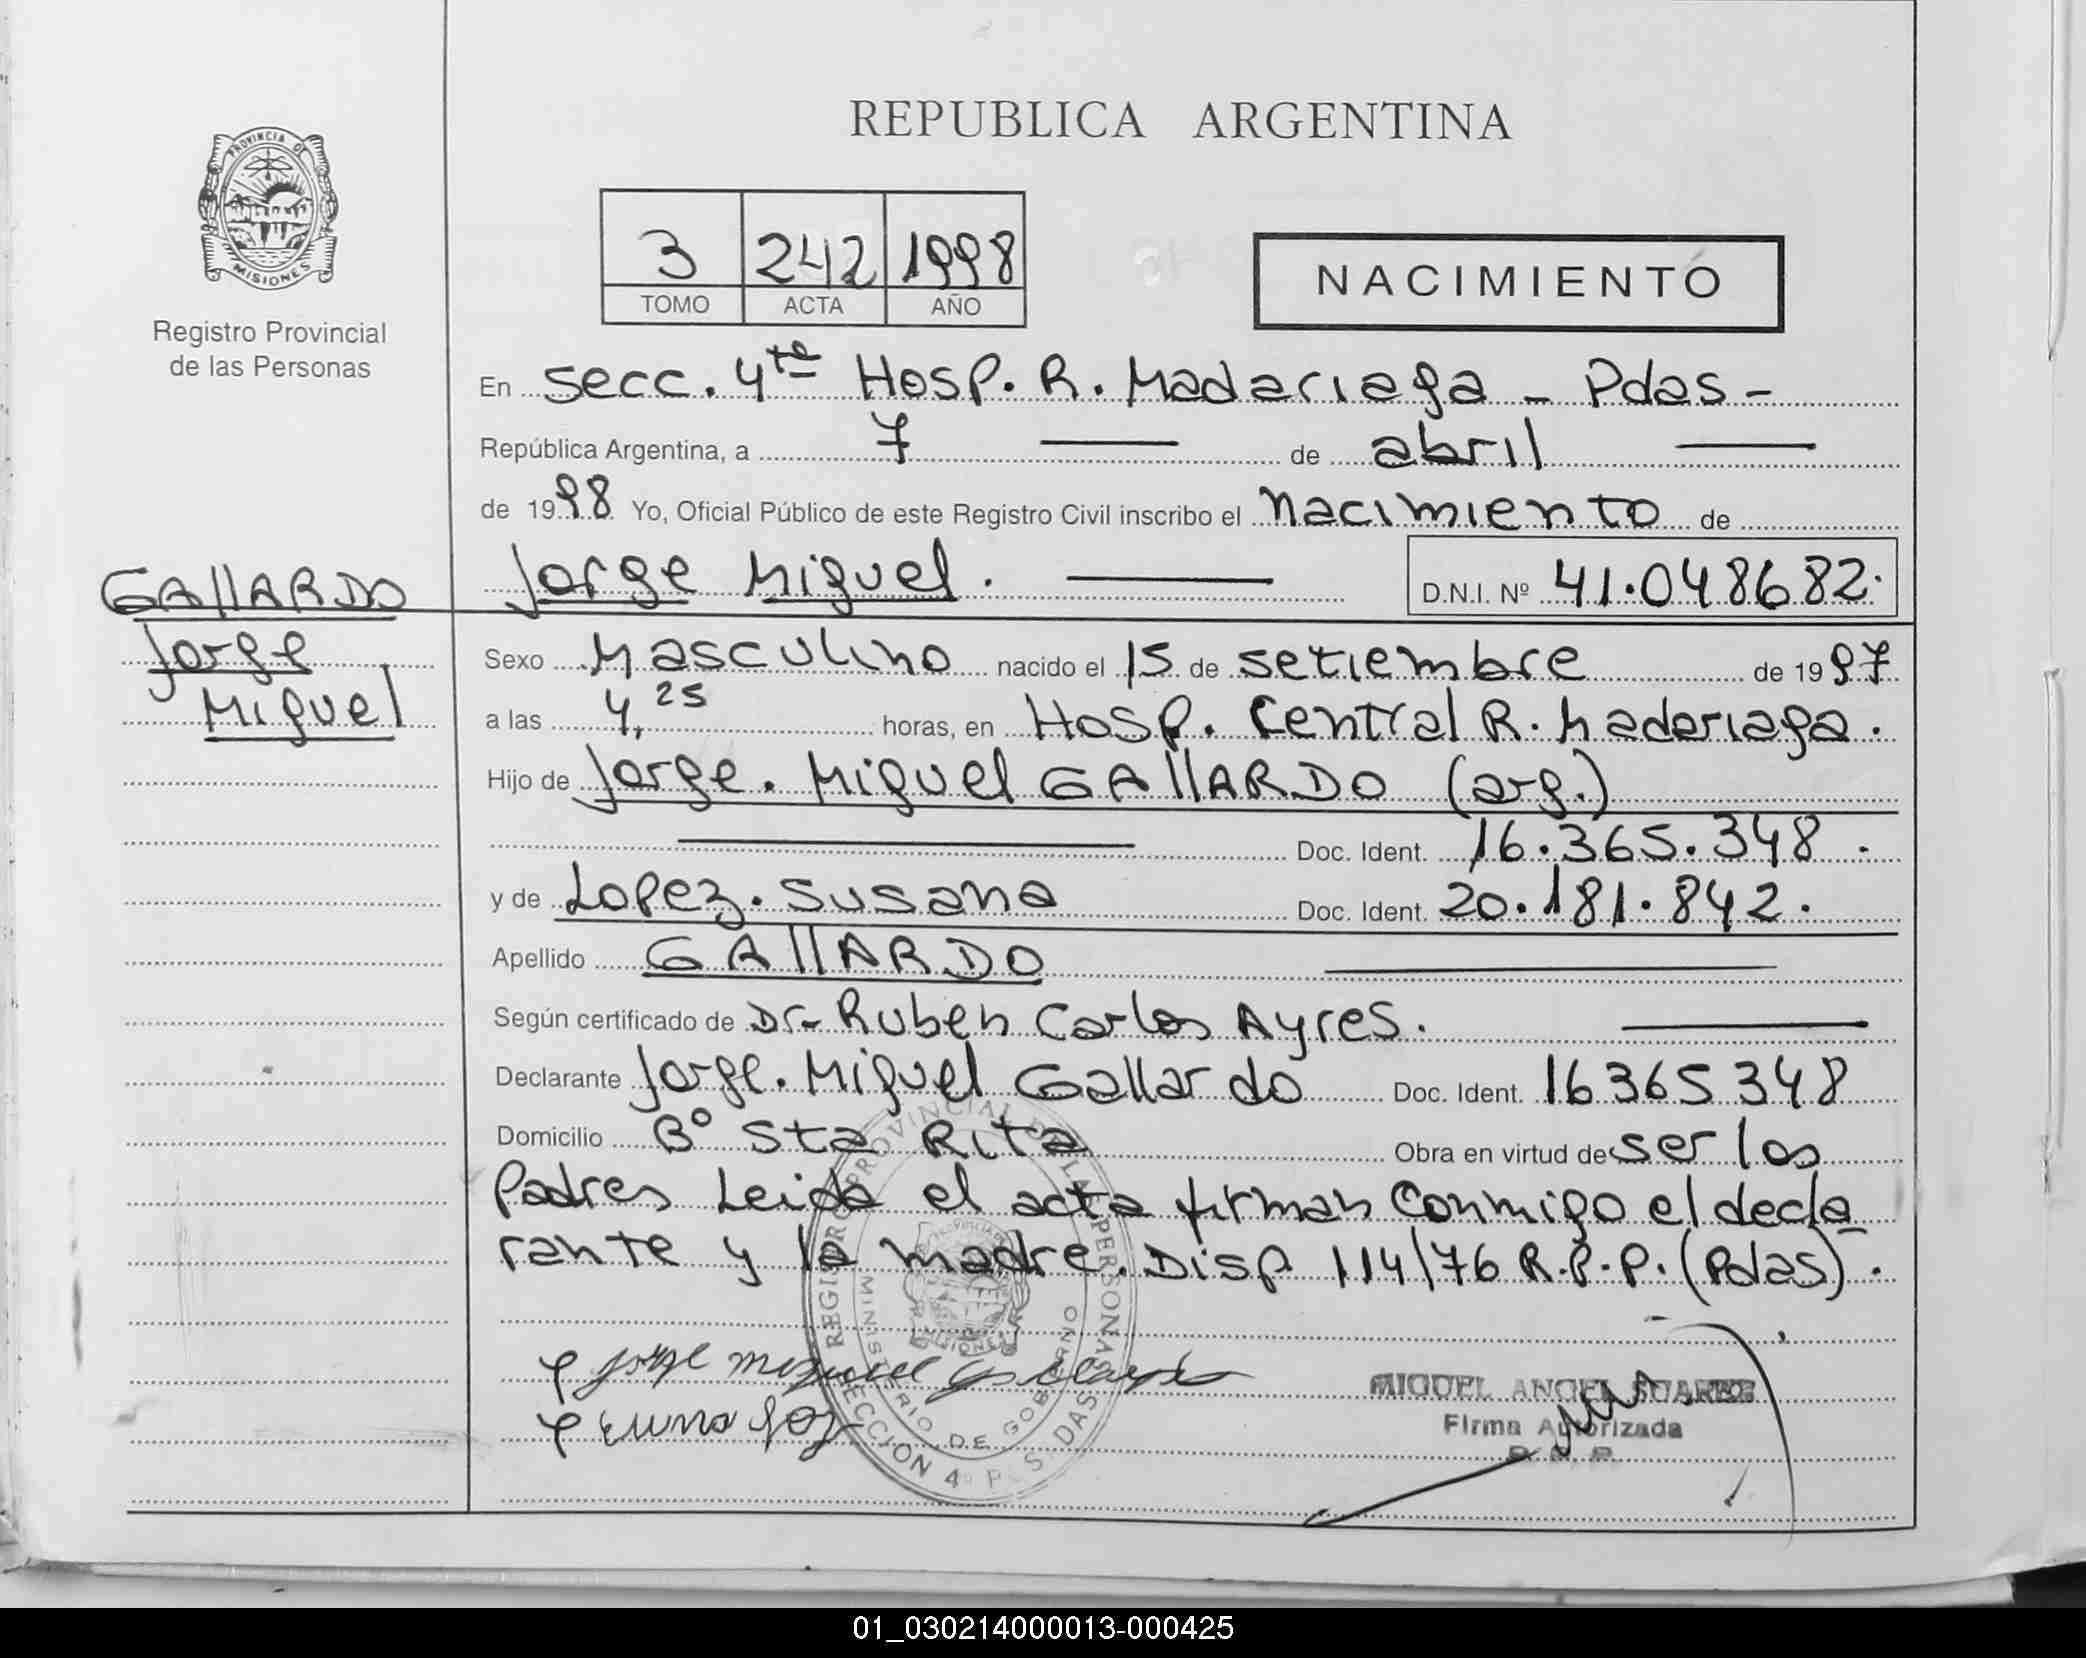 REPUBLICA ARGENTINA
PROVINCIA DE
MISIONES
Registro Provincial
de las Personas
3 242 1998
TOMO ACTA AÑO
NACIMIENTO
En secc. 4ta Hosp. R. Madariaga - Pdas -
República Argentina, a 7 de abril
de 1998 Yo, Oficial Público de este Registro Civil inscribo el nacimiento de
Jorge Miguel. D.N.I. Nº 41.048682.
GALLARDO
Jorge
Miguel
Sexo Masculino nacido el 15 de setiembre de 1997
a las 4,25 horas, en Hosp. Central R. Madariaga.
Hijo de Jorge. Miguel GALLARDO (arg.)
Doc. Ident. 16.365.348.
y de Lopez. Susana Doc. Ident. 20.181.842.
Apellido GALLARDO
Según certificado de Dr. Ruben Carlos Ayres.
Declarante Jorge. Miguel Gallardo Doc. Ident. 16365348
Domicilio Bº Sta Rita Obra en virtud de ser los
Padres Leida el acta firman conmigo el decla
rante y la madre. Disp 114/76 R.P.P. (Pdas).
REGISTRO PROVINCIAL DE LAS PERSONAS
MINISTERIO DE GOBIERNO
SECCION 4º POSADAS
Jorge Miguel Gallardo
MIGUEL ANGEL SUAREZ
Firma Autorizada
R. P. P.
01_030214000013-000425